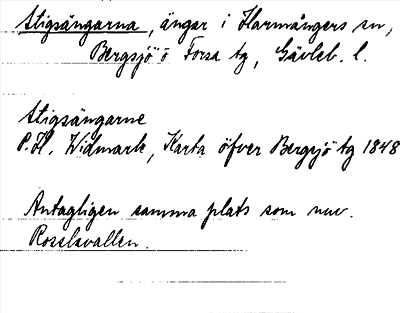 Stigsängarna, ängar i Harmångers sn,
Bergsjö o Forsa tg, Gävleb. l.
Stigsängarne
P.H. Widmark, Karta öfver Bergsjö tg 1848
Antagligen samma plats som nuv.
Rosslavallen.